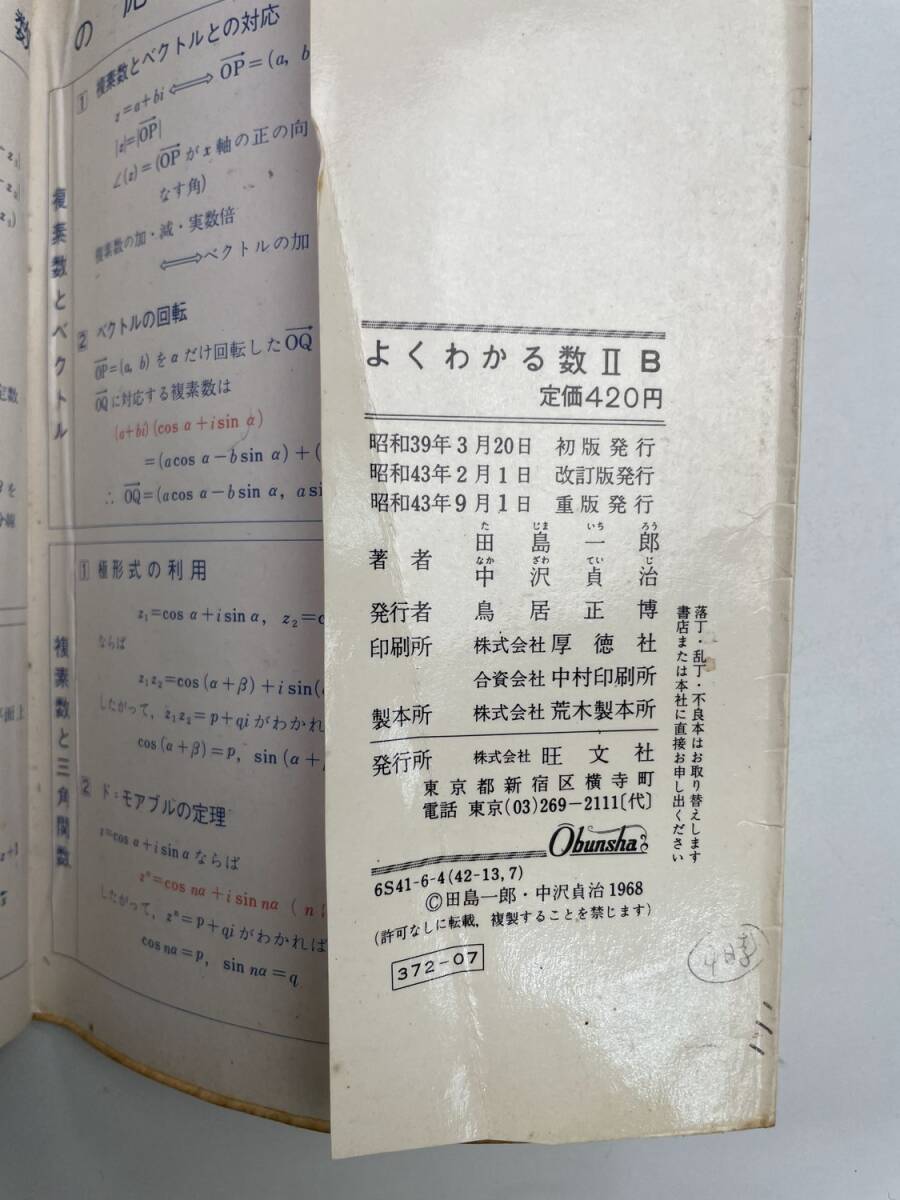 数
の
複素数とベクトル
1 複素数とベクトルとの対応
z=a+bi⟺OP=(a, b
|z|=|OP|
∠(z)=(OPがx軸の正の向
なす角)
複素数の加・減・実数倍
⟺ベクトルの加
2 ベクトルの回転
OP=(a, b)をαだけ回転したOQ
OQに対応する複素数は
(a+bi)(cos α+i sin α)
=(a cos α−b sin α)+(
∴ OQ=(a cos α−b sin α, a sin
複素数と三角関数
1 極形式の利用
z₁=cos α+i sin α, z₂=c
ならば
z₁z₂=cos (α+β)+i sin(
したがって, z₁z₂=p+qiがわかれ
cos (α+β)=p, sin (α+
2 ド=モアブルの定理
z=cos α+i sin αならば
zⁿ=cos nα+i sin nα ( n
したがって, zⁿ=p+qiがわかれば
cos nα=p, sin nα=q
定数
を
分線
平面上
よくわかる数ⅡB
定価420円
昭和39年3月20日 初版発行
昭和43年2月1日 改訂版発行
昭和43年9月1日 重版発行
た じま いち ろう
著者 田島一郎
なか ざわ てい じ
中沢貞治
発行者 鳥居正博
印刷所 株式会社 厚徳社
合資会社 中村印刷所
製本所 株式会社 荒木製本所
発行所 株式会社 旺文社
東京都新宿区横寺町
電話 東京(03)269−2111〔代〕
Obunsha
6S41-6-4(42-13,7)
©田島一郎・中沢貞治1968
(許可なしに転載，複製することを禁じます)
372-07
落丁・乱丁・不良本はお取り替えします
書店または本社に直接お申し出ください